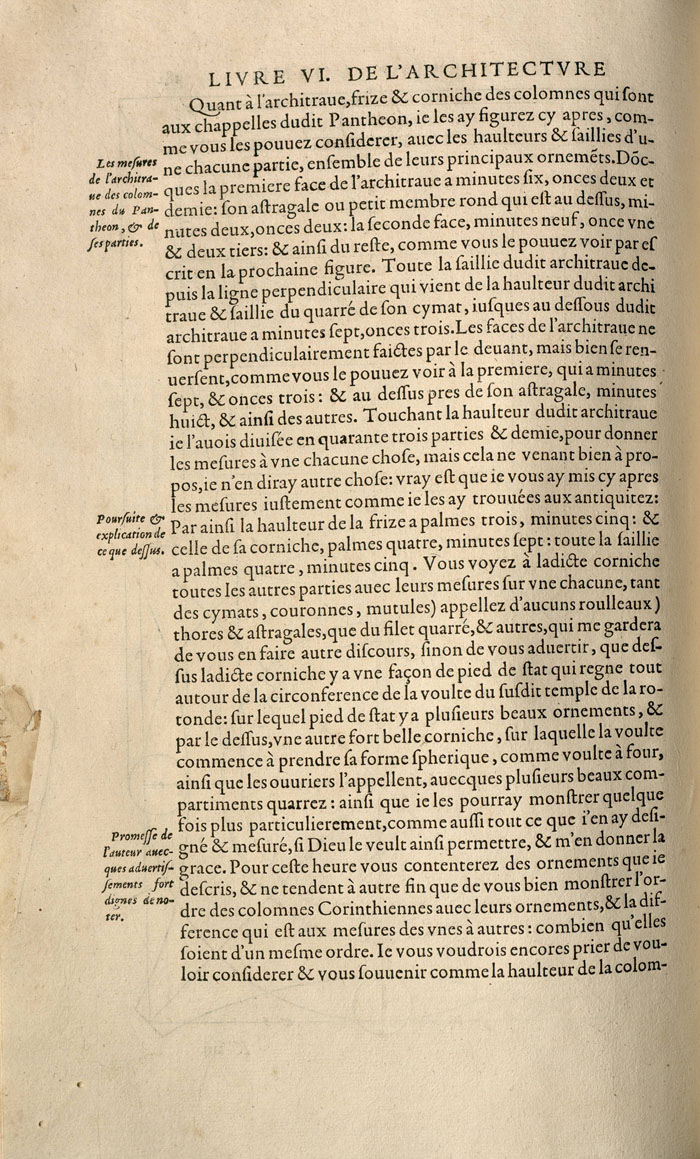 LIVRE VI. DE L'ARCHITECTVRE
Quant à l'architraue,frize & corniche des colomnes qui sont
aux chappelles dudit Pantheon, ie les ay figurez cy apres, com-
me vous les pouuez considerer, auec les haulteurs & saillies d'u-
ne chacune partie, ensemble de leurs principaux ornemẽts.Dõc-
ques la premiere face de l'architraue a minutes six, onces deux et
demie: son astragale ou petit membre rond qui est au dessus, mi-
nutes deux,onces deux: la seconde face, minutes neuf, once vne
& deux tiers: & ainsi du reste, comme vous le pouuez voir par es
crit en la prochaine figure. Toute la saillie dudit architraue de-
puis la ligne perpendiculaire qui vient de la haulteur dudit archi
traue & saillie du quarré de son cymat, iusques au dessous dudit
architraue a minutes sept,onces trois.Les faces de l'architraue ne
sont perpendiculairement faictes par le deuant, mais bien se ren-
uersent,comme vous le pouuez voir à la premiere, qui a minutes
sept, & onces trois: & au dessus pres de son astragale, minutes
huict, & ainsi des autres. Touchant la haulteur dudit architraue
ie l'auois diuisée en quarante trois parties & demie,pour donner
les mesures à vne chacune chose, mais cela ne venant bien à pro-
pos,ie n'en diray autre chose: vray est que ie vous ay mis cy apres
les mesures iustement comme ie les ay trouuées aux antiquitez:
Par ainsi la haulteur de la frize a palmes trois, minutes cinq: &
celle de sa corniche, palmes quatre, minutes sept: toute la saillie
a palmes quatre, minutes cinq. Vous voyez à ladicte corniche
toutes les autres parties auec leurs mesures sur vne chacune, tant
des cymats, couronnes, mutules) appellez d'aucuns roulleaux)
thores & astragales,que du filet quarré,& autres,qui me gardera
de vous en faire autre discours, sinon de vous aduertir, que des-
sus ladicte corniche y a vne façon de pied de stat qui regne tout
autour de la circonference de la voulte du susdit temple de la ro-
tonde: sur lequel pied de stat y a plusieurs beaux ornements, &
par le dessus,vne autre fort belle corniche, sur laquelle la voulte
commence à prendre sa forme spherique, comme voulte à four,
ainsi que les ouuriers l'appellent, auecques plusieurs beaux com-
partiments quarrez: ainsi que ie les pourray monstrer quelque
fois plus particulierement,comme aussi tout ce que i'en ay desi-
gné & mesuré,si Dieu le veult ainsi permettre, & m'en donner la
grace. Pour ceste heure vous contenterez des ornements que ie
descris, & ne tendent à autre fin que de vous bien monstrer l'or-
dre des colomnes Corinthiennes auec leurs ornements,& la dif-
ference qui est aux mesures des vnes à autres: combien qu'elles
soient d'un mesme ordre. Ie vous voudrois encores prier de vou-
loir considerer & vous souuenir comme la haulteur de la colom-
Les mesures
de l'architra-
ue des colom-
nes du Pan-
theon, & de
ses parties.
Poursuite &
explication de
ce que dessus.
Promesse de
l'auteur auec-
ques aduertis-
sements fort
dignes de no-
ter.